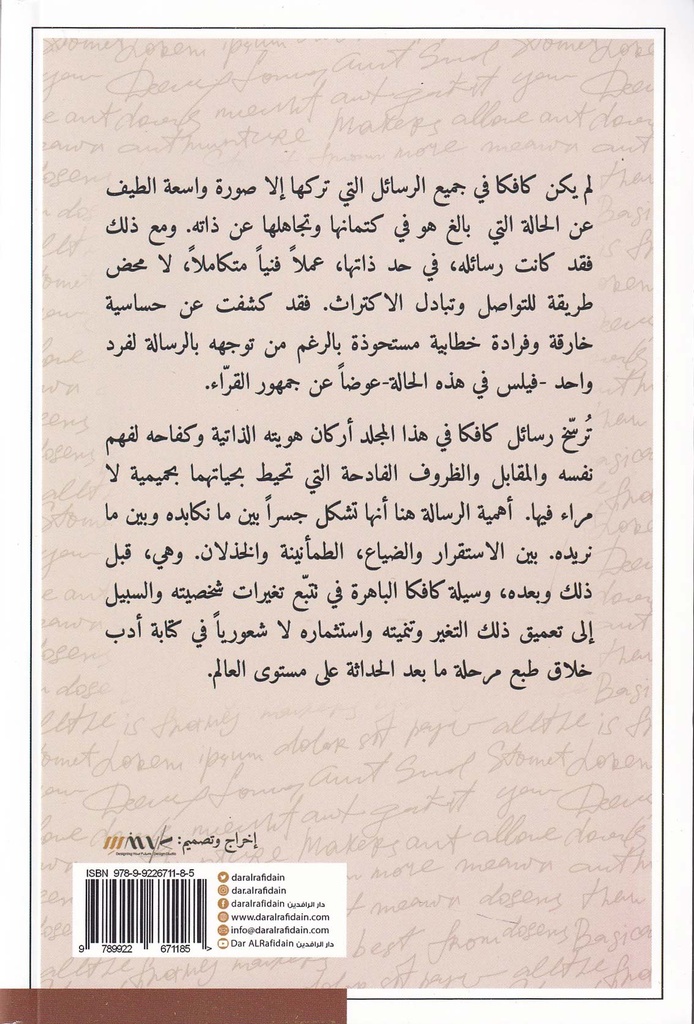 لم يكن كافكا في جميع الرسائل التي تركها إلا صورة واسعة الطيف
عن الحالة التي بالغ هو في كتمانها وتجاهلها عن ذاته. ومع ذلك
فقد كانت رسائله، في حد ذاتها، عملاً فنياً متكاملاً، لا محض
طريقة للتواصل وتبادل الاكتراث. فقد كشفت عن حساسية
خارقة وفرادة خطابية مستحوذة بالرغم من توجهه بالرسالة لفرد
واحد -فيلس في هذه الحالة-عوضاً عن جمهور القرّاء.
تُرسّخ رسائل كافكا في هذا المجلد أركان هويته الذاتية وكفاحه لفهم
نفسه والمقابل والظروف الفادحة التي تحيط بحياتهما بحميمية لا
مراء فيها. أهمية الرسالة هنا أنها تشكل جسراً بين ما نكابده وبين ما
نريده. بين الاستقرار والضياع، الطمأنينة والخذلان. وهي، قبل
ذلك وبعده، وسيلة كافكا الباهرة في تتبّع تغيرات شخصيته والسبيل
إلى تعميق ذلك التغير وتنميته واستثماره لا شعورياً في كتابة أدب
خلاق طبع مرحلة ما بعد الحداثة على مستوى العالم.
إخراج وتصميم:
ISBN 978-9-9226711-8-5
9 789922 671185 >
daralrafidain
dar.alrafidain
daralrafidain دار الرافدين
www.daralrafidain.com
info@daralrafidain.com
Dar ALRafidain دار الرافدين